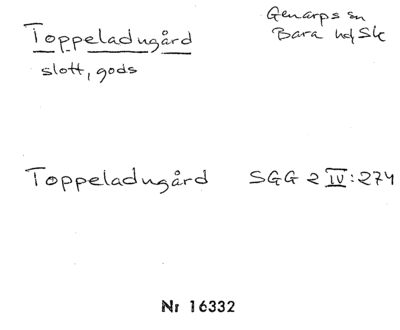 Toppeladugård
slott, gods
Genarps sn
Bara hd Sk
Toppeladugård SGG 2 IV:274
Nr 16332